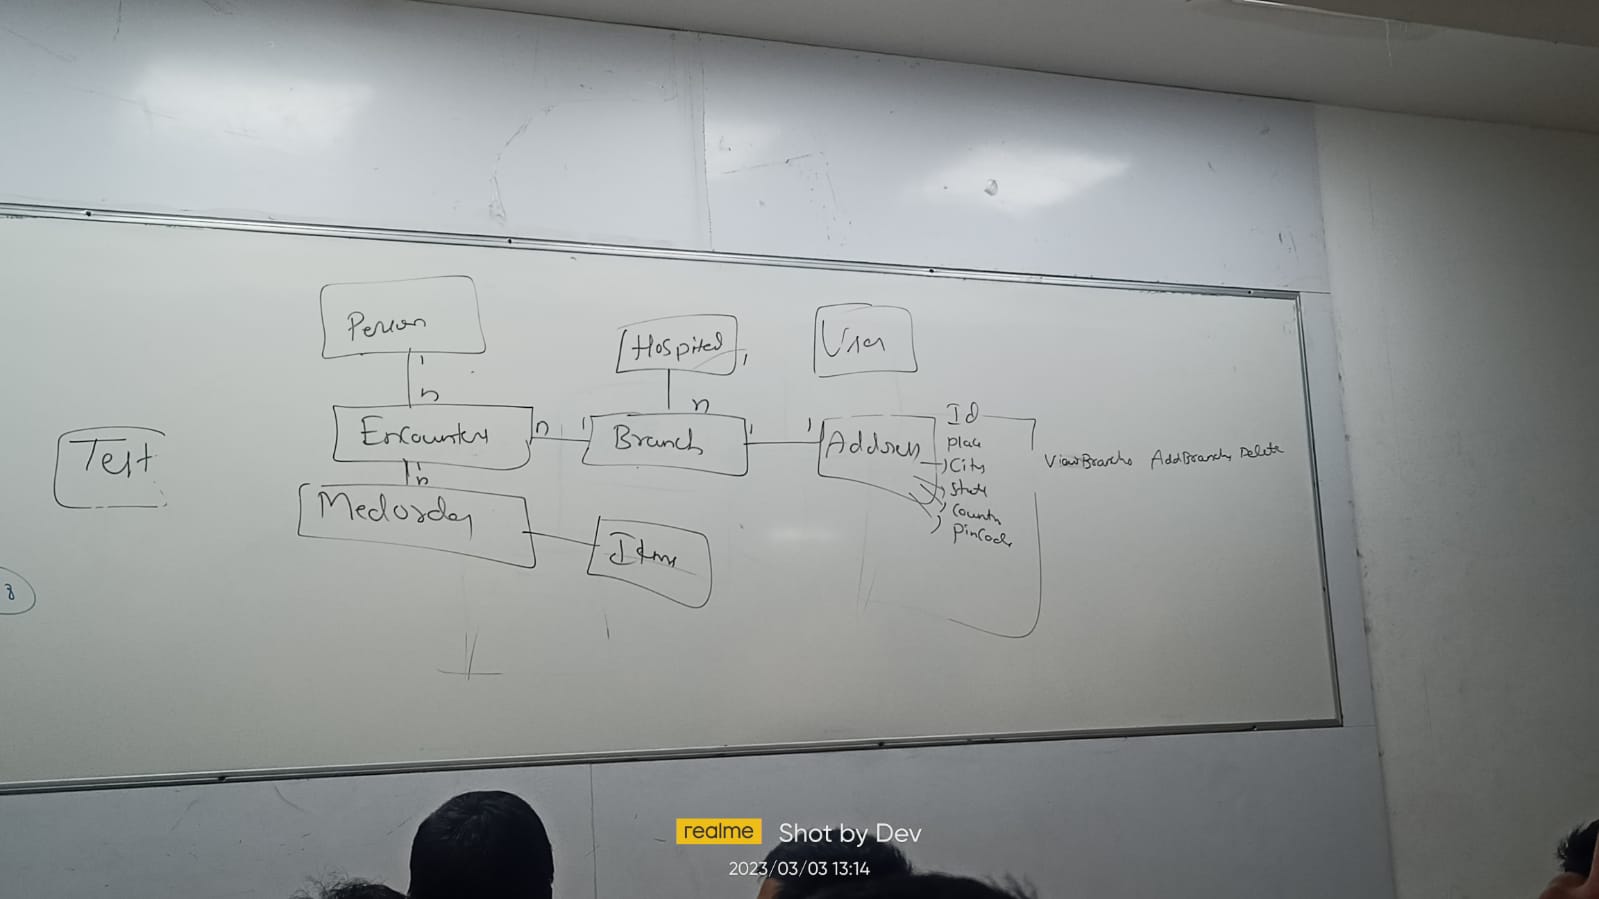 Person
Hospital
User
1
n
1
n
Id
Test
Encounter
n
1
Branch
1
1
Address
place
City
State
Country
Pincode
ViewBranchs AddBranch, Delete
1
n
Medorder
Items
8
realme Shot by Dev
2023/03/03 13:14